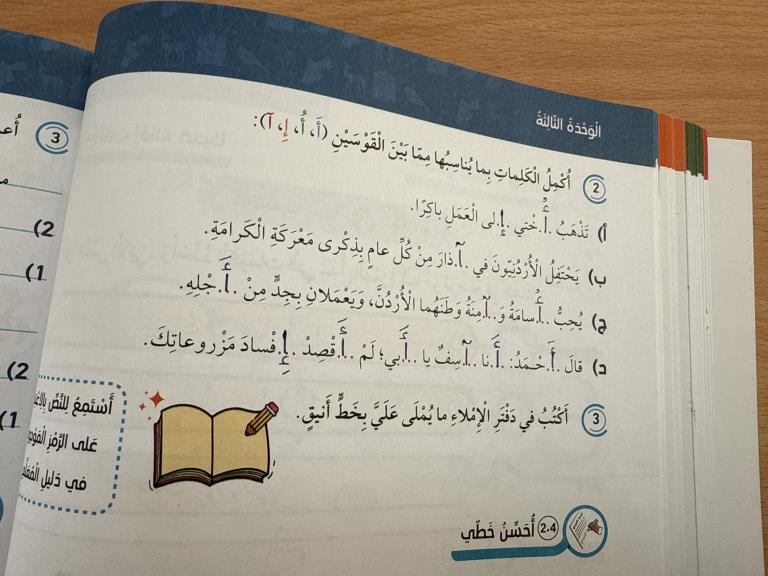 الْوَحْدَةُ الثّالِثَةُ
2 أُكْمِلُ الْكَلِماتِ بِما يُناسِبُها مِمّا بَيْنَ الْقَوْسَيْنِ (أَ، أُ، إِ، آ):
أ) تَذْهَبُ .أُ.خْتي .إِ.لى الْعَمَلِ باكِرًا.
ب) يَحْتَفِلُ الْأُرْدُنِيّونَ في .آ.ذارَ مِنْ كُلِّ عامٍ بِذِكْرى مَعْرَكَةِ الْكَرامَةِ.
ج) يُحِبُّ .أُ.سامَةُ وَ.آ.مِنَةُ وَطَنَهُما الْأُرْدُنَّ، وَيَعْمَلانِ بِجِدٍّ مِنْ .أَ.جْلِهِ.
د) قالَ .أَ.حْمَدُ: .أَ.نا .آ.سِفٌ يا .أَ.بي؛ لَمْ .أَ.قْصِدْ .إِ.فْسادَ مَزْروعاتِكَ.
3 أَكْتُبُ في دَفْتَرِ الْإِمْلاءِ ما يُمْلَى عَلَيَّ بِخَطٍّ أَنيقٍ.
2.4 أُحَسِّنُ خَطّي
3
2)
1)
2)
1)
أَسْتَمِعُ لِلنَّصِّ
عَلى الرَّمْزِ
في دَليلِ